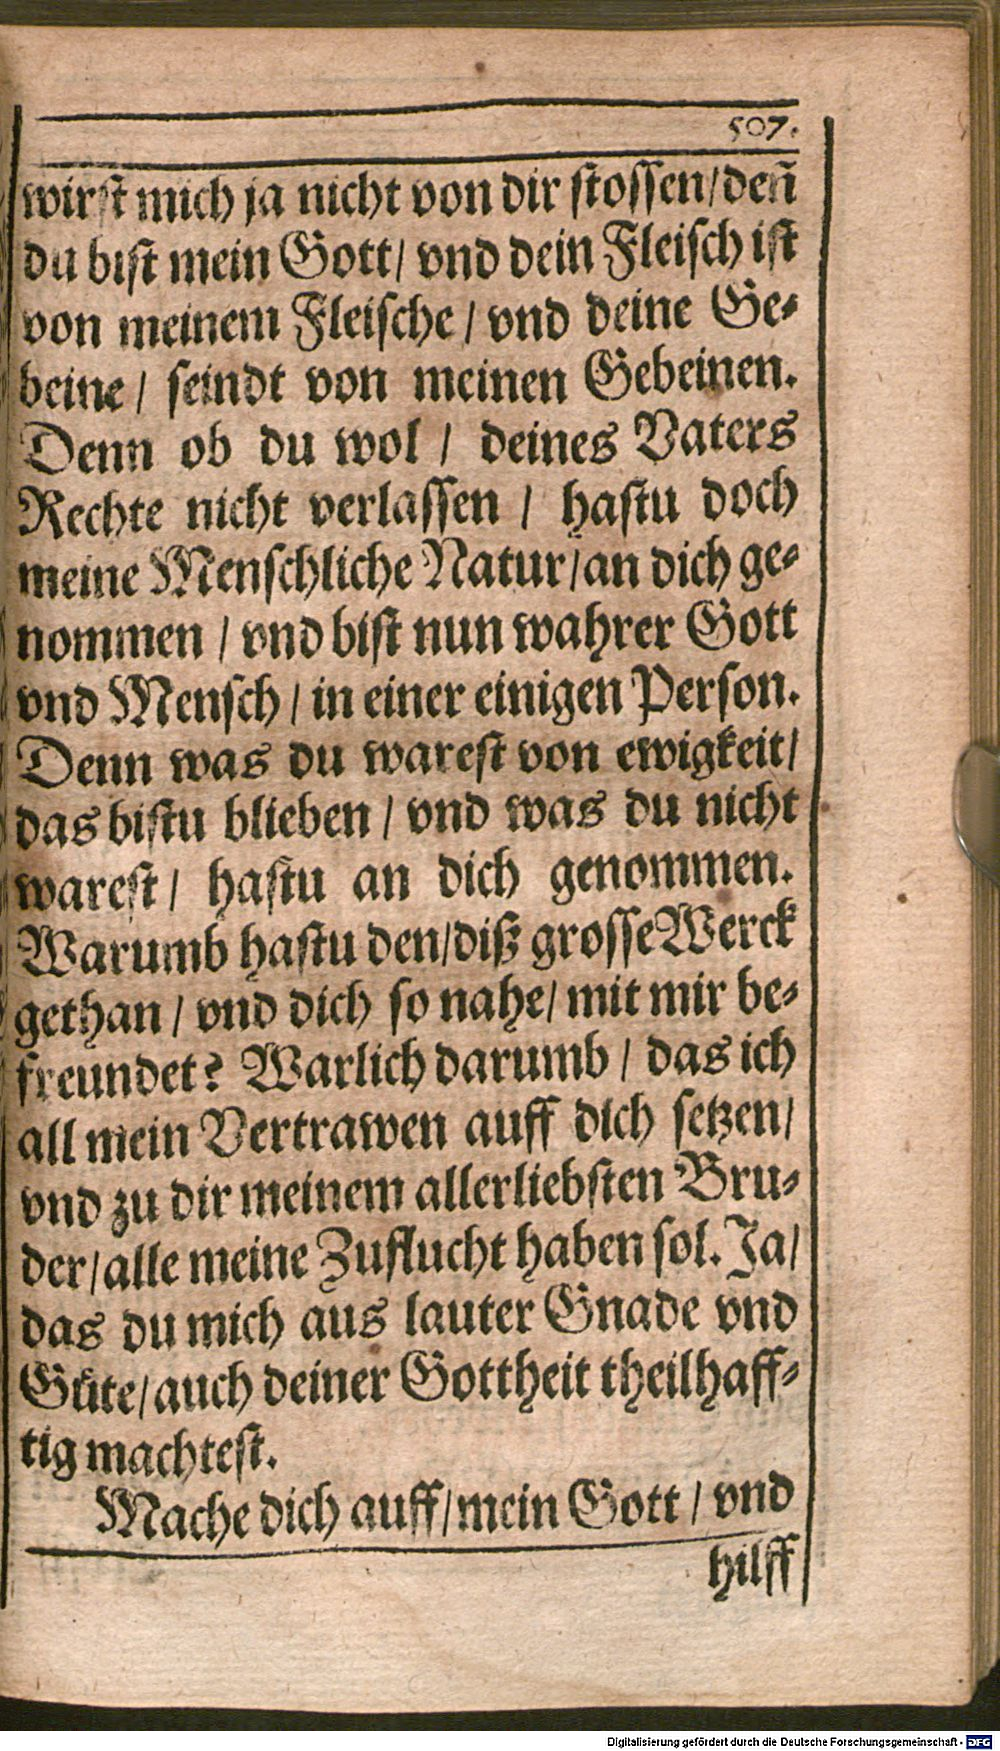 507.
wirst mich ja nicht von dir stossen/deñ
du bist mein Gott/ vnd dein Fleisch ist
von meinem Fleische / vnd deine Ge-
beine / seindt von meinen Gebeinen.
Denn ob du wol / deines Vaters
Rechte nicht verlassen / hastu doch
meine Menschliche Natur/an dich ge-
nommen / vnd bist nun wahrer Gott
vnd Mensch / in einer einigen Person.
Denn was du warest von ewigkeit/
das bistu blieben / vnd was du nicht
warest / hastu an dich genommen.
Warumb hastu den/diß grosse Werck
gethan / vnd dich so nahe/ mit mir be-
freundet? Warlich darumb / das ich
all mein Vertrawen auff dich setzen/
vnd zu dir meinem allerliebsten Bru-
der/alle meine Zuflucht haben sol. Ja/
das du mich aus lauter Gnade vnd
Güte/auch deiner Gottheit theilhaff-
tig machtest.
Mache dich auff/mein Gott / vnd
hilff
Digitalisierung gefördert durch die Deutsche Forschungsgemeinschaft - DFG